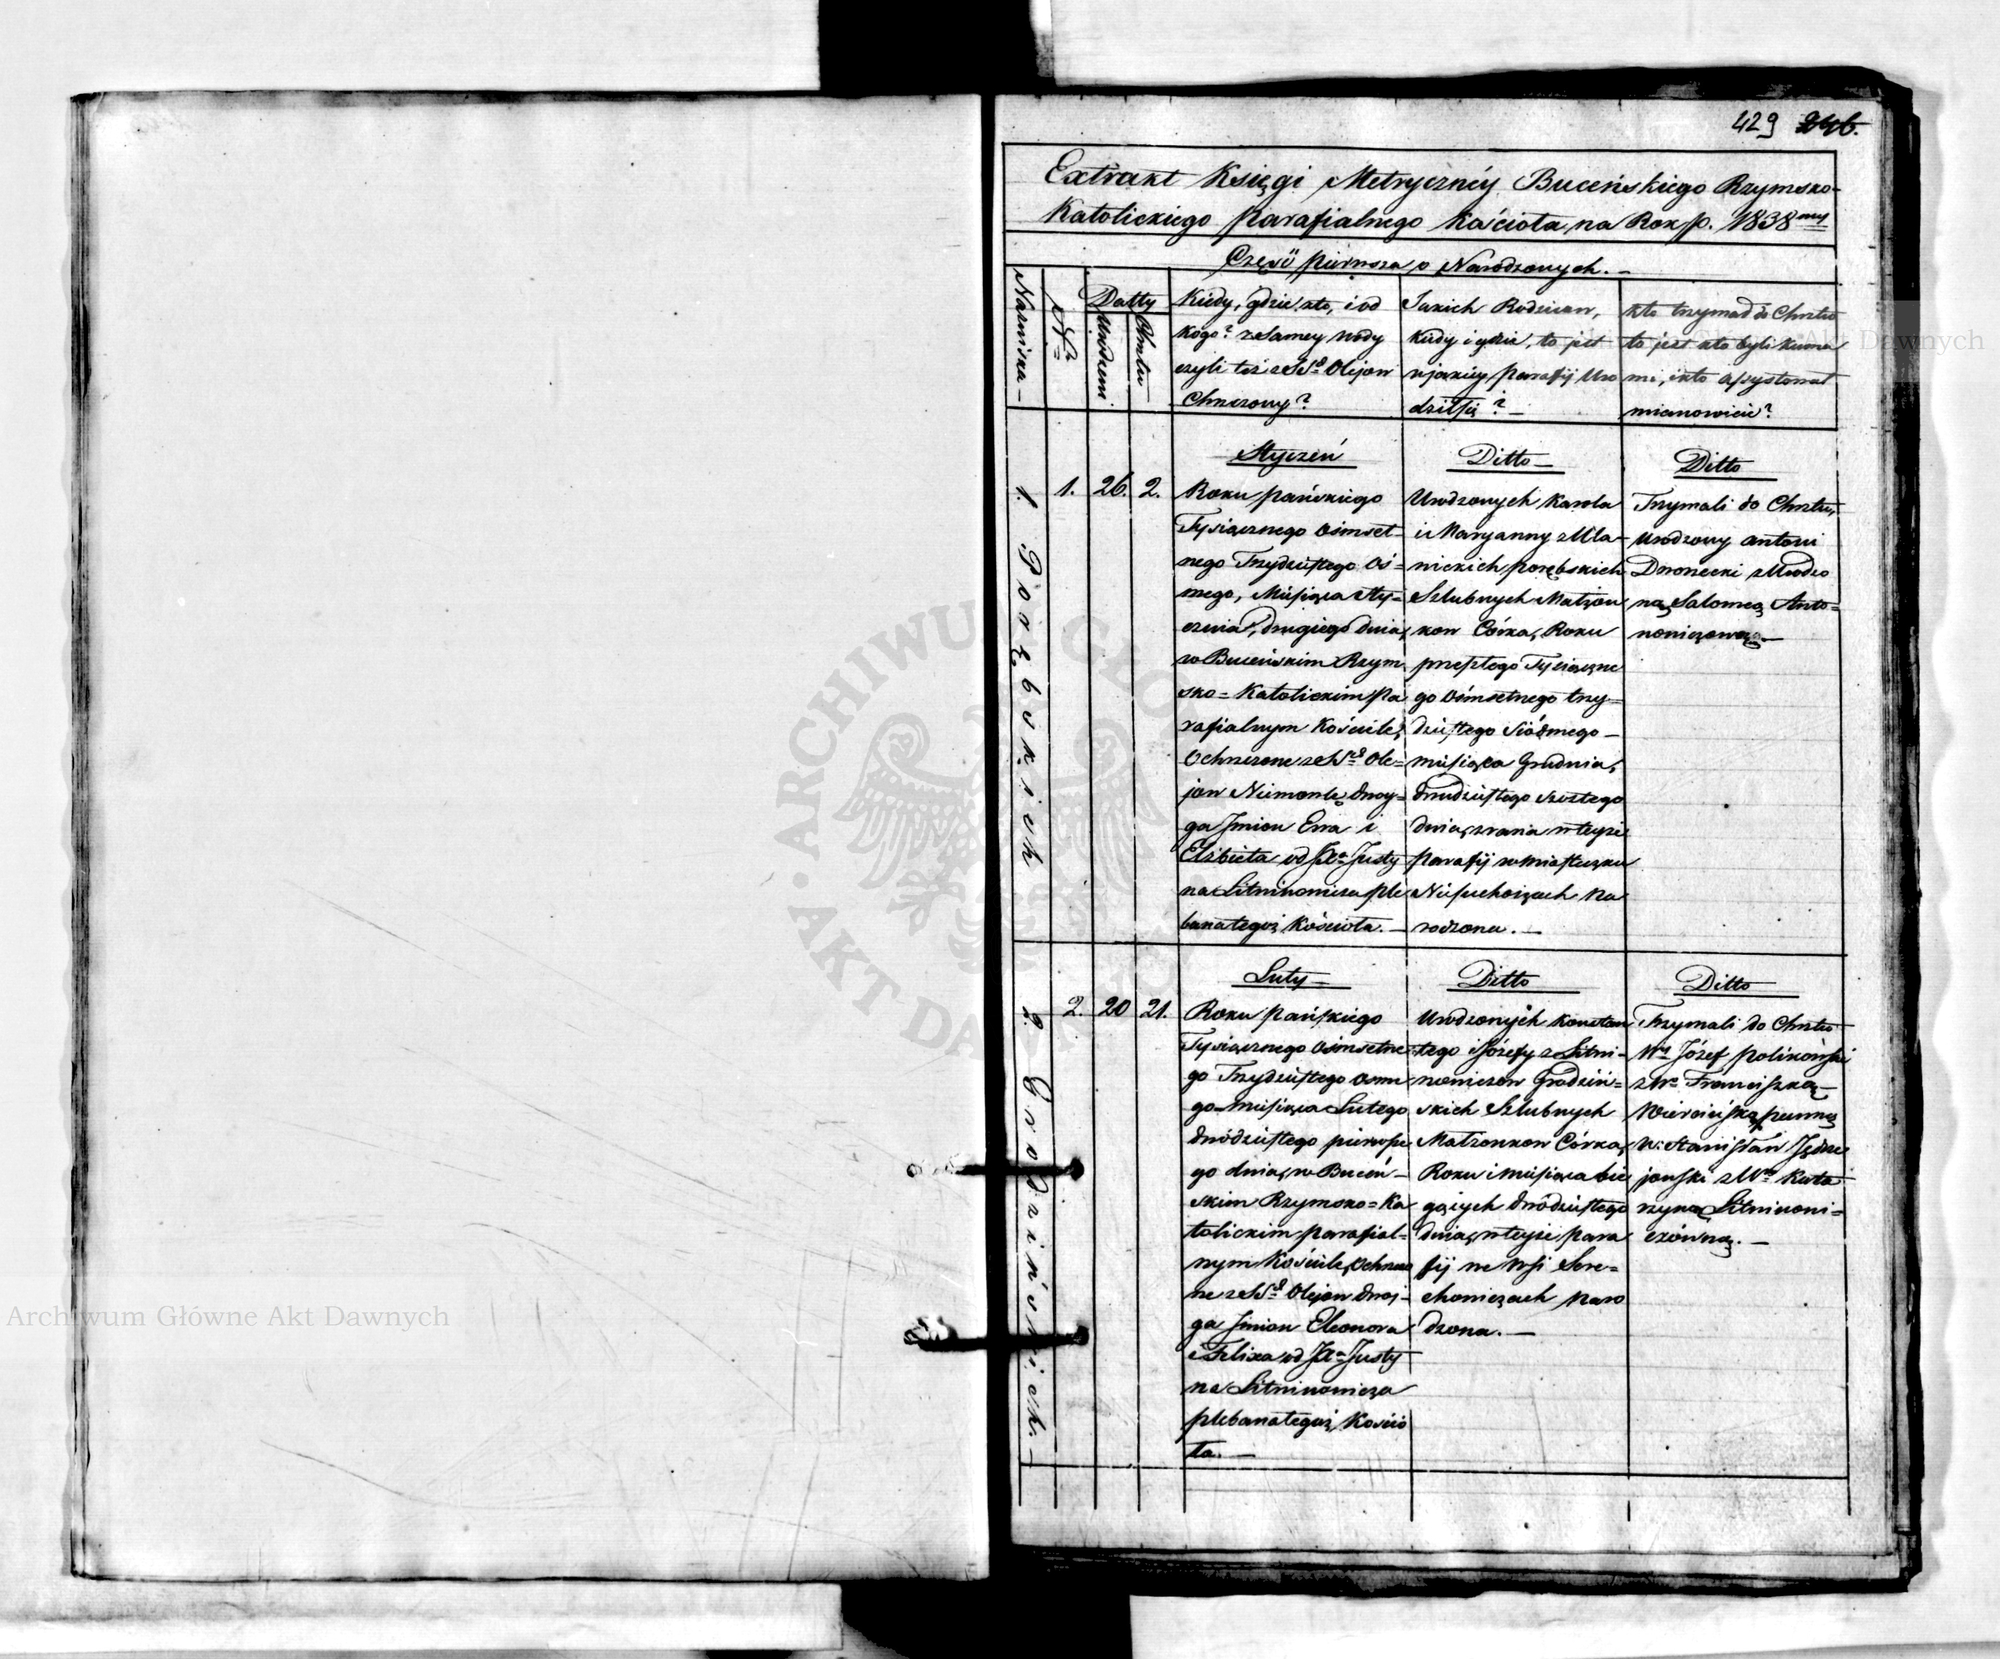 429 246.
Extrakt Księgi Metryczney Buceńskiego Rzymsko-
Katolickiego Parafialnego Kościoła, na Rok p. 1838my
Część pierwsza, o Narodzonych. —
Nazwiska —
No
Datty
Urodzeni
Chrztu
Kiedy, gdzie, kto, i od
kogo? z samey wody
czyli też z SSd Olejow
Chrzczony?
Jakich Rodzicow,
kiedy i gdzie, to jest
w jakiey Parafij Uro
dził się? —
kto trzymał do Chrztu
to jest kto byli kuma
mi, i kto assystował
mianowicie?
1. Porębskich
1. 26. 2.
Styczeń
Roku pańskiego
Tysiącznego Ośmset-
nego Trzydziestego Os-
mego, Miesiąca Sty-
cznia, drugiego dnia,
w Buceńskim Rzym
sko-Katolickim Pa
rafialnym Kościele,
Ochrzczone z SSd Ole-
jow Niemowlę dwoy-
ga Imion Ewa i
Elżbieta od Xa Justy
na Litwinowicza ple
bana tegoż Kościoła. —
Ditto —
Urodzonych Karola
i Maryanny z Mła-
nickich Porębskich
Szlubnych Małżon
kow Córka, Roku
przeszłego Tysiączne
go Ośmsetnego trzy-
dziestego Siódmego —
miesiąca Grudnia,
dwudziestego szóstego
dnia, zrana w teyże
parafij w miasteczku
Niesuchoiżach na
rodzona. —
Ditto
Trzymali do Chrztu,
Urodzony Antoni
Dworzecki z Urodzo
ną Salomeą Anto-
nowiczową —
2. Grodzińskich. —
2. 20 21.
Luty —
Roku pańskiego
Tysiącznego Ośmsetne
go Trzydziestego osm
go miesiąca Lutego
dwódziestego pierwsze
go dnia, w Buceń-
skim Rzymsko-Ka
tolickim parafial-
nym Kościele, Ochrzczo
ne z SSd Olejow dwoj-
ga Imion Eleonora
i Felixa od Xa Justy
na Litwinowicza
plebana tegoż Kościo
ła. —
Ditto
Urodzonych Konstan
tego i Józefy z Litwi-
nowiczow Grodziń-
skich Szlubnych
Małżonkow Córka,
Roku i miesiąca bie
gących dwódziestego
dnia, w teyże para
fij we Wsi Sere-
chowiczach naro
dzona. —
Ditto
Trzymali do Chrztu
Wny Józef Polikowski
z Wą Franciszką —
Wiercińską, panną
W. Stanisław Jędrze
jowski z Wną Kata
rzyną Litwinowi-
czówną. —
Archiwum Główne Akt Dawnych